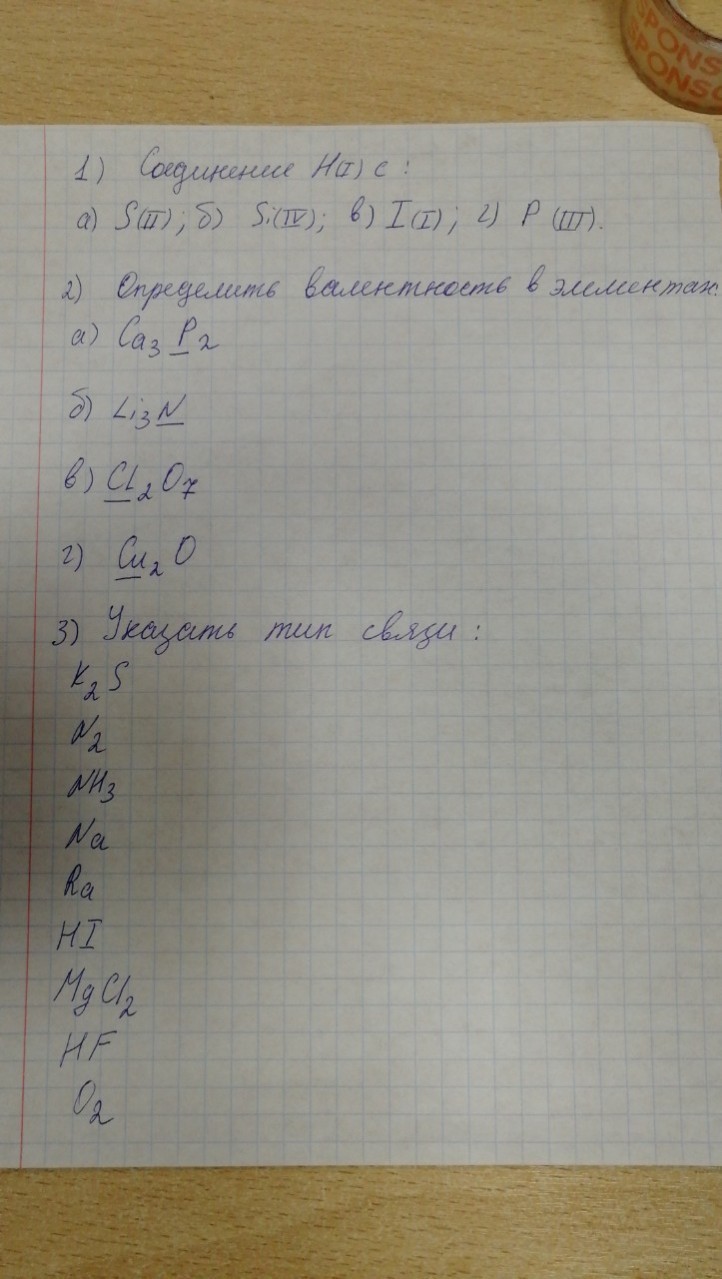 SPONS
SPONSO
1) Соединение H(I) с:
а) S(II); б) Si(IV); в) I(I); г) P(III).
2) Определить валентность в элементах:
а) Ca₃P₂
б) Li₃N
в) Cl₂O₇
г) Cu₂O
3) Указать тип связи:
K₂S
N₂
NH₃
Na
Ra
HI
MgCl₂
HF
O₂